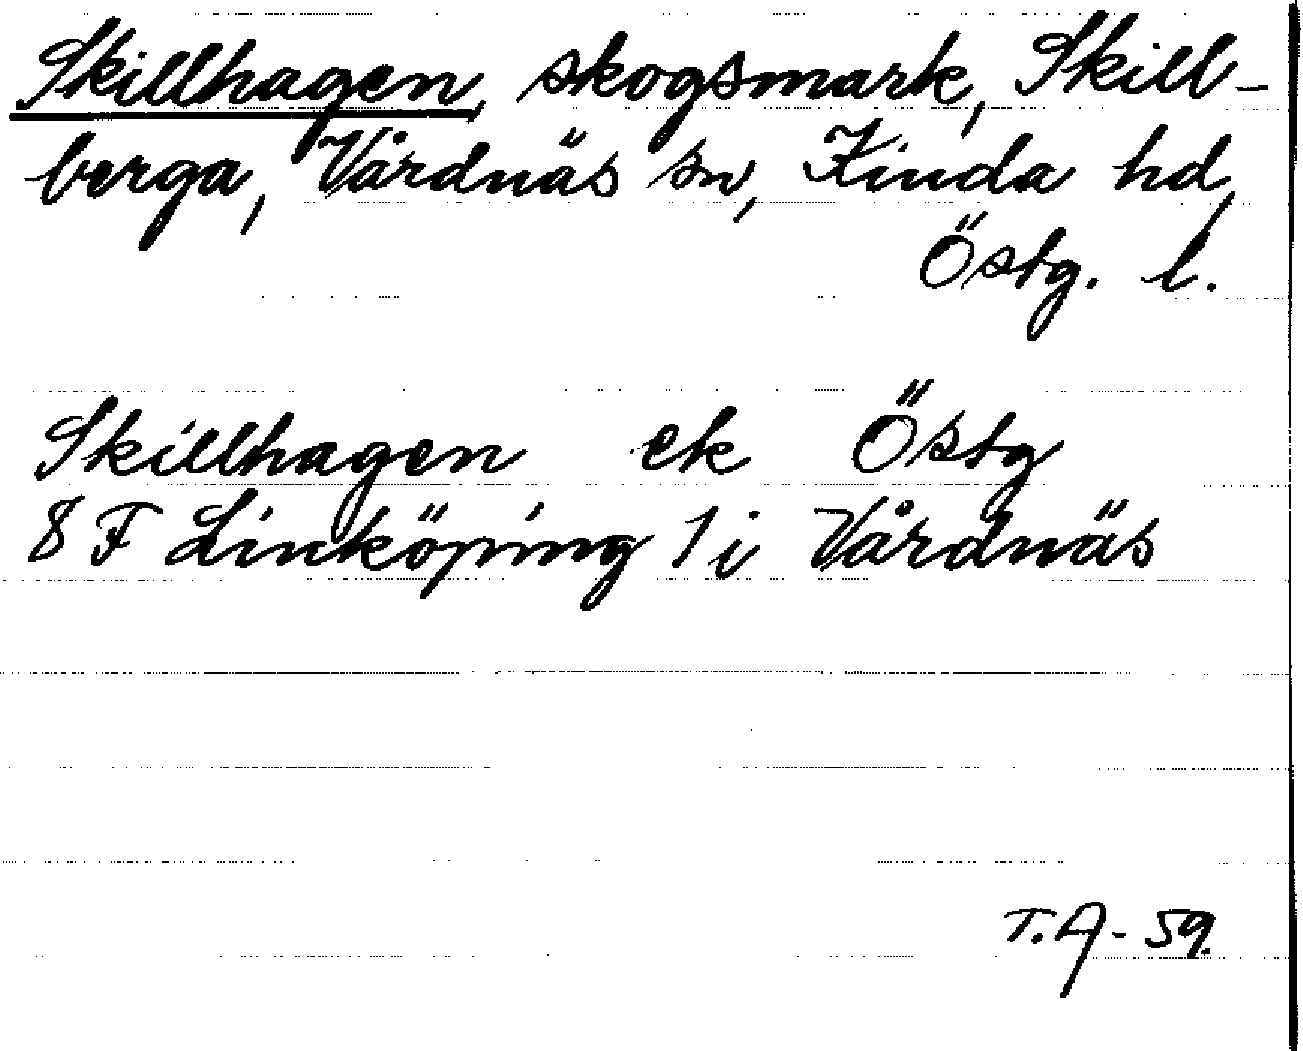 Skillhagen, skogsmark, Skill-
berga, Vårdnäs sn, Kinda hd,
Östg. l.
Skillhagen ek Östg
8 F Linköping 1 i Vårdnäs
T.A-59.